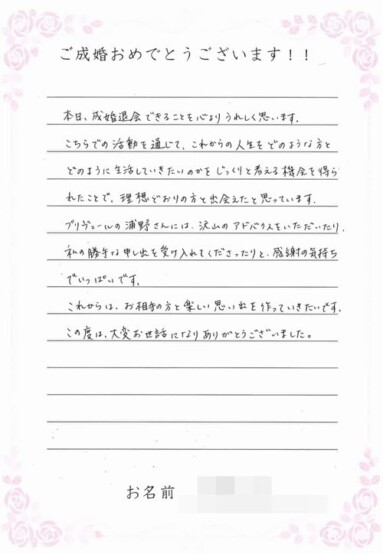 ご成婚おめでとうございます！！
本日、成婚退会できることを心よりうれしく思います。
こちらでの活動を通じて、これからの人生をどのような方と
どのように生活していきたいのかをじっくりと考える機会を得ら
れたことで、理想どおりの方と出会えたと思っています。
ブリヂェールの浦野さんには、沢山のアドバイスをいただいたり、
私の勝手な申し出を受け入れてくださったりと、感謝の気持ち
でいっぱいです。
これからは、お相手の方と楽しい思い出を作っていきたいです。
この度は、大変お世話になりありがとうございました。
お名前